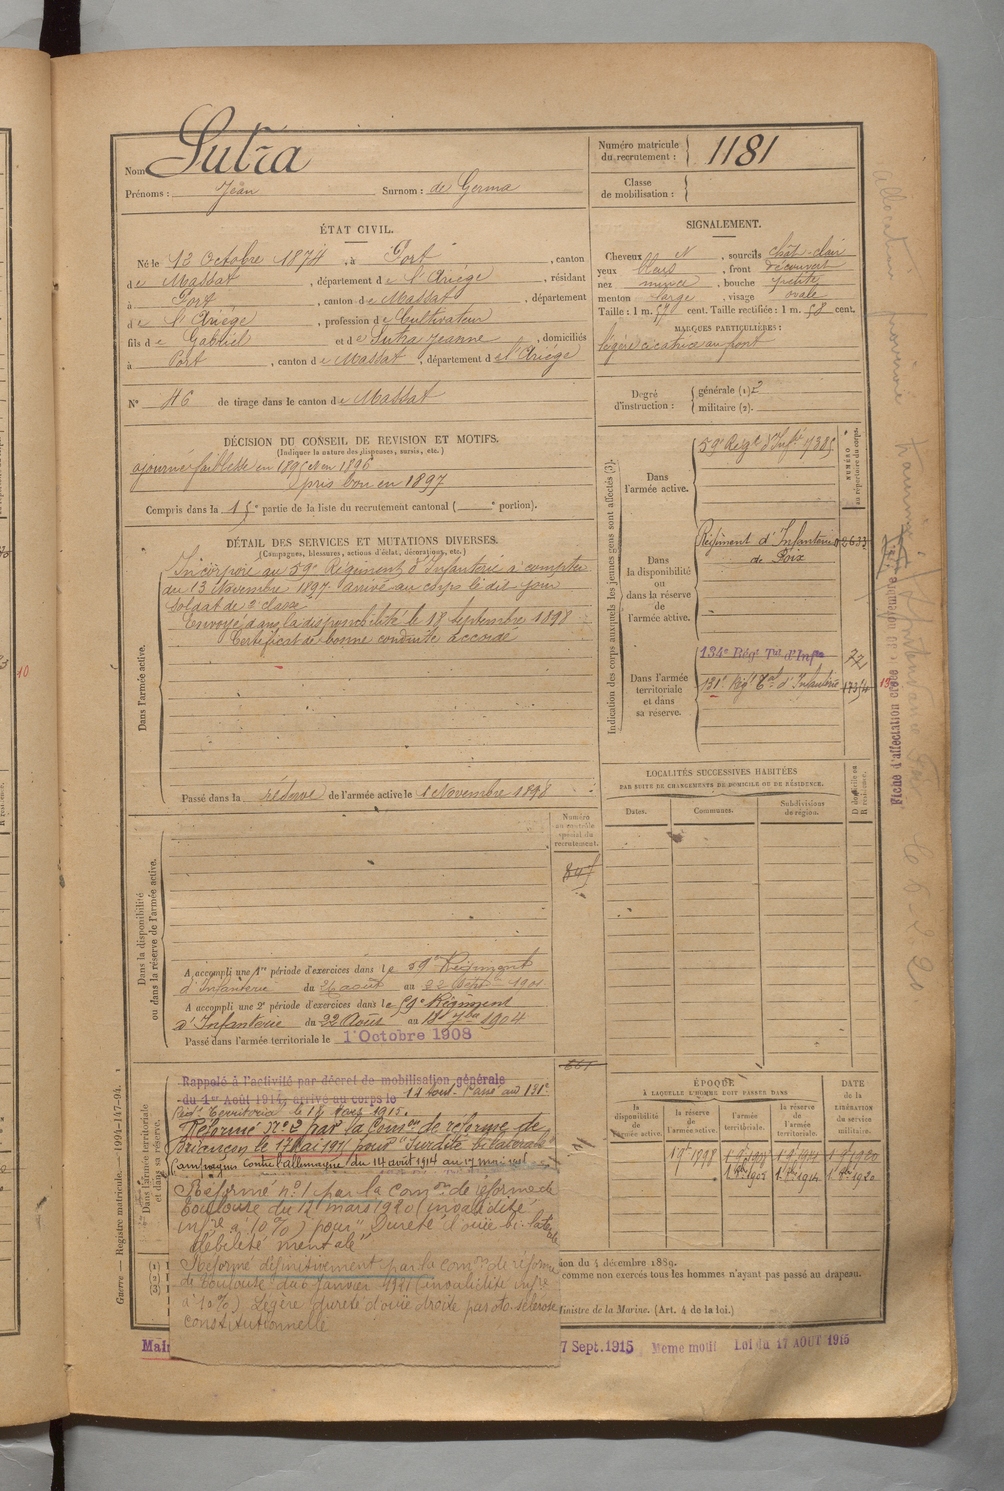 Nom Sutra
Prénoms : Jean Surnom : de Germa
Numéro matricule du recrutement : 1181
Classe de mobilisation :
ÉTAT CIVIL.
Né le 12 Octobre 1874, à Port, canton
de Massat, département de l'Ariège, résidant
à Port, canton de Massat, département
de l'Ariège, profession de Cultivateur
fils de Gabriel et de Sutra Jeanne, domiciliés
à Port, canton de Massat, département de l'Ariège
N° 46 de tirage dans le canton de Massat
SIGNALEMENT.
Cheveux N, sourcils chât-clair
yeux bleus, front découvert
nez mince, bouche petite
menton large, visage ovale
Taille : 1 m. 57 cent. Taille rectifiée : 1 m. 58 cent.
MARQUES PARTICULIÈRES :
légère cicatrice au front
Degré d'instruction : générale (1) 2
militaire (2).
DÉCISION DU CONSEIL DE REVISION ET MOTIFS.
(Indiquer la nature des dispenses, sursis, etc.)
ajourné faiblesse en 1895 et en 1896
pris bon en 1897
Compris dans la 1re partie de la liste du recrutement cantonal ( e portion).
DÉTAIL DES SERVICES ET MUTATIONS DIVERSES.
(Campagnes, blessures, actions d'éclat, décorations, etc.)
Dans l'armée active.
Incorporé au 59e Régiment d'Infanterie à compter
du 13 Novembre 1897 arrivé au corps le dit jour
Soldat de 2e classe
Envoyé dans la disponibilité le 18 septembre 1898
Certificat de bonne conduite accordé
Passé dans la réserve de l'armée active le 1 Novembre 1898
Indication des corps auxquels les jeunes gens sont affectés (3).
NUMÉRO au répertoire du corps.
Dans l'armée active.
59e Régt d'Infie 7385
Dans la disponibilité ou dans la réserve de l'armée active.
Régiment d'Infanterie 2633
de Foix
Dans l'armée territoriale et dans sa réserve.
134e Régt Tal d'Infie 22
131e Régt Tal d'Infanterie
LOCALITÉS SUCCESSIVES HABITÉES
PAR SUITE DE CHANGEMENTS DE DOMICILE OU DE RÉSIDENCE.
Dates. Communes. Subdivisions de région.
D domicile ou R résidence.
Dans la disponibilité ou dans la réserve de l'armée active.
Numéro au contrôle spécial du recrutement.
A accompli une 1re période d'exercices dans le 59e Régiment
d'Infanterie du 26 août au 22 Septbre 1901
A accompli une 2e période d'exercices dans le 59e Régiment
d'Infanterie du 22 Août au 18 7bre 1904
Passé dans l'armée territoriale le 1 Octobre 1908
Dans l'armée territoriale et dans sa réserve.
Rappelé à l'activité par décret de mobilisation générale
du 1er Août 1914, arrivé au corps le 14 août. Passé au 131e
Régt Territorial le 18 Mars 1915.
Réformé n° 2 par la Comon de réforme de
Briançon le 17 Mai 1915 pour "Surdité bilatérale"
Campagnes contre l'Allemagne du 14 août 1914 au 17 mai 1915
Réformé n° 1 par la comon de réforme de
Toulouse du 12 mars 1920 (invalidité
infre à 10 %) pour "Dureté d'ouïe bi-latérale
débilité mentale"
Réformé définitivement par la comon de réforme
de Toulouse du 6 janvier 1921 (invalidité infre
à 10 %) Légère dureté d'ouïe droite par oto-sclérose
constitutionnelle
ÉPOQUE
À LAQUELLE L'HOMME DOIT PASSER DANS
la disponibilité de l'armée active. la réserve de l'armée active. l'armée territoriale. la réserve de l'armée territoriale.
DATE de la LIBÉRATION du service militaire.
1 9bre 1898 1 9bre 1908 1 9bre 1914 1 9bre 1920
1 8bre 1908 1 8bre 1914 1 8bre 1920
ion du 4 décembre 1889.
comme non exercés tous les hommes n'ayant pas passé au drapeau.
Ministre de la Marine. (Art. 4 de la loi.)
7 Sept. 1915 Même motif Loi du 17 AOUT 1915
Guerre — Registre matricule. — 1994-147-94.
Allocation provisoire